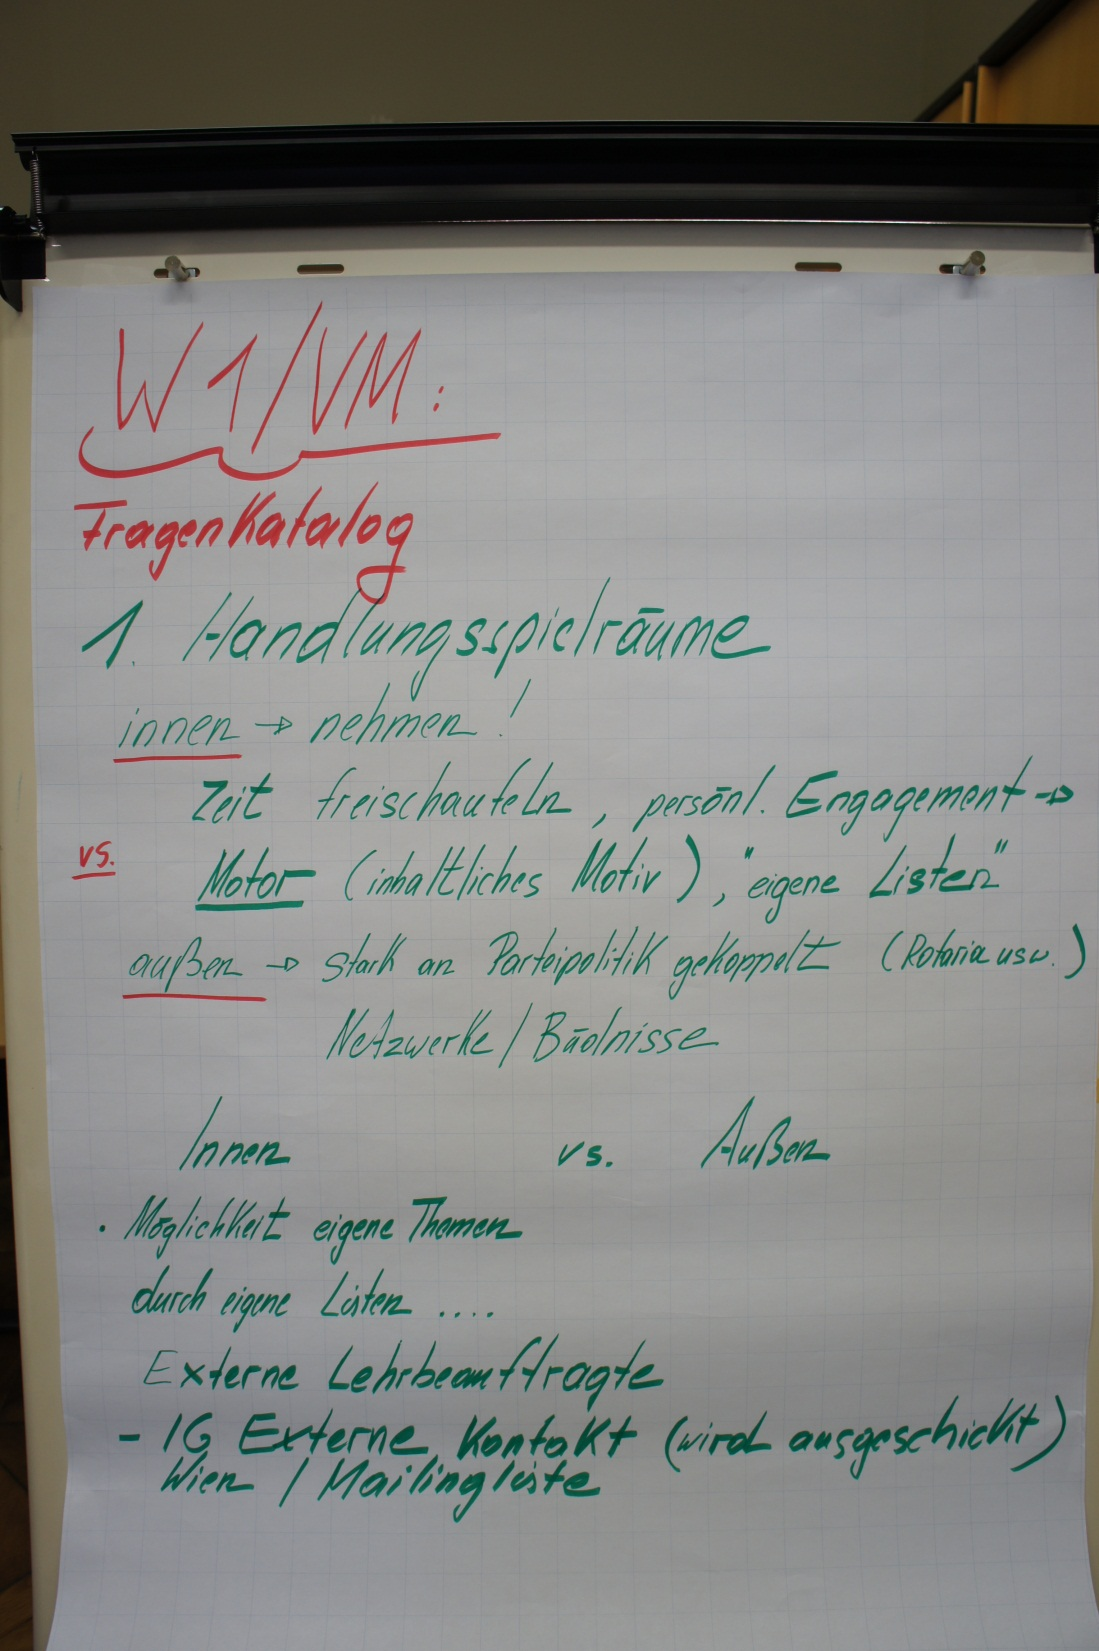 W1/VM:
Fragenkatalog
1. Handlungsspielräume
innen → nehmen!
Zeit freischaufeln, persönl. Engagement →
vs.
Motor (inhaltliches Motiv), "eigene Listen"
außen → stark an Parteipolitik gekoppelt (Rotaria usw.)
Netzwerke / Büdnisse
Innen vs. Außen
· Möglichkeit eigene Themen
durch eigene Listen ....
Externe Lehrbeauftragte
- IG Externe Kontakt (wird ausgeschickt)
Wien / Mailingliste